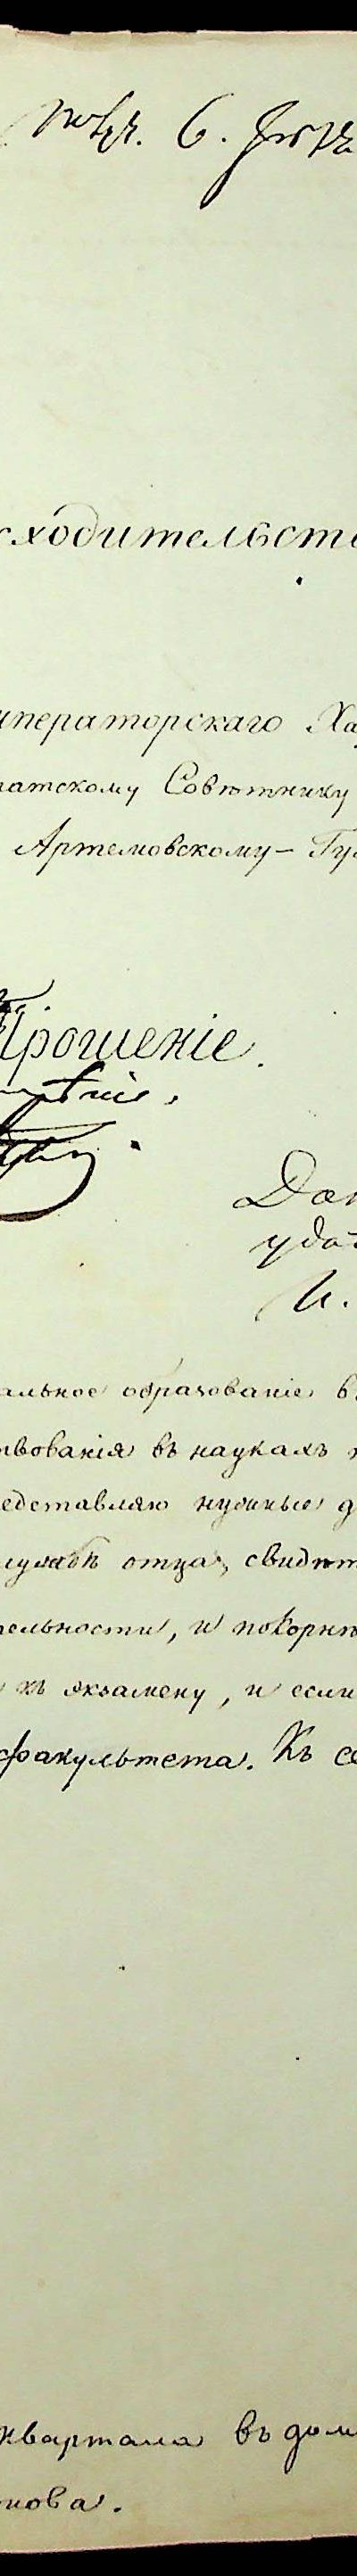 6.
сходительств
мператорскаго Ха
татскому Совѣтнику
Артемовскому-Гу
Прошеніе.
Доп
удо
И.
альное образованіе в
твованія въ наукахъ
едставляю нужные д
службѣ отца, свидѣт
тельности, и покорнѣ
къ экзамену, и если
факультета. Къ се
квартала въ дом
нова.